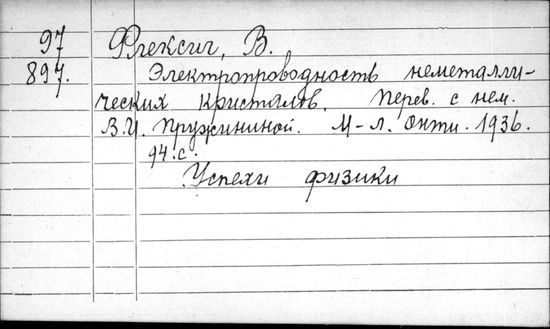 97 Флексиг, В.
897. Электропроводность неметалли-
ческих кристалов. Перев. с нем.
В.И. Пружининой. М-л. Онти. 1936.
94.с.
Успехи физики